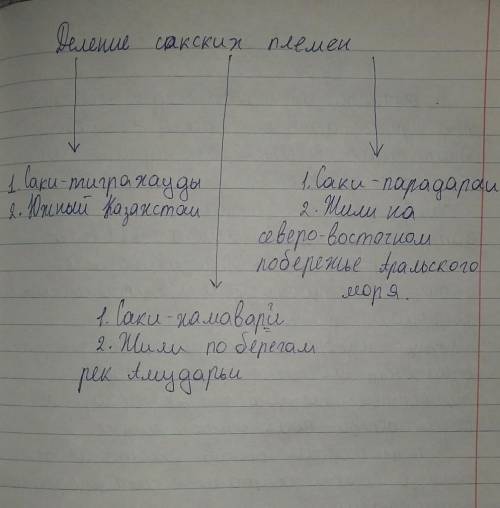 Деление сакских племен
1. Саки-тиграхауды
2. Южный Казахстан
1. Саки-парадараи
2. Жили на
северо-восточном
побережье Аральского
моря.
1. Саки-хамовари
2. Жили по берегам
рек Амударьи